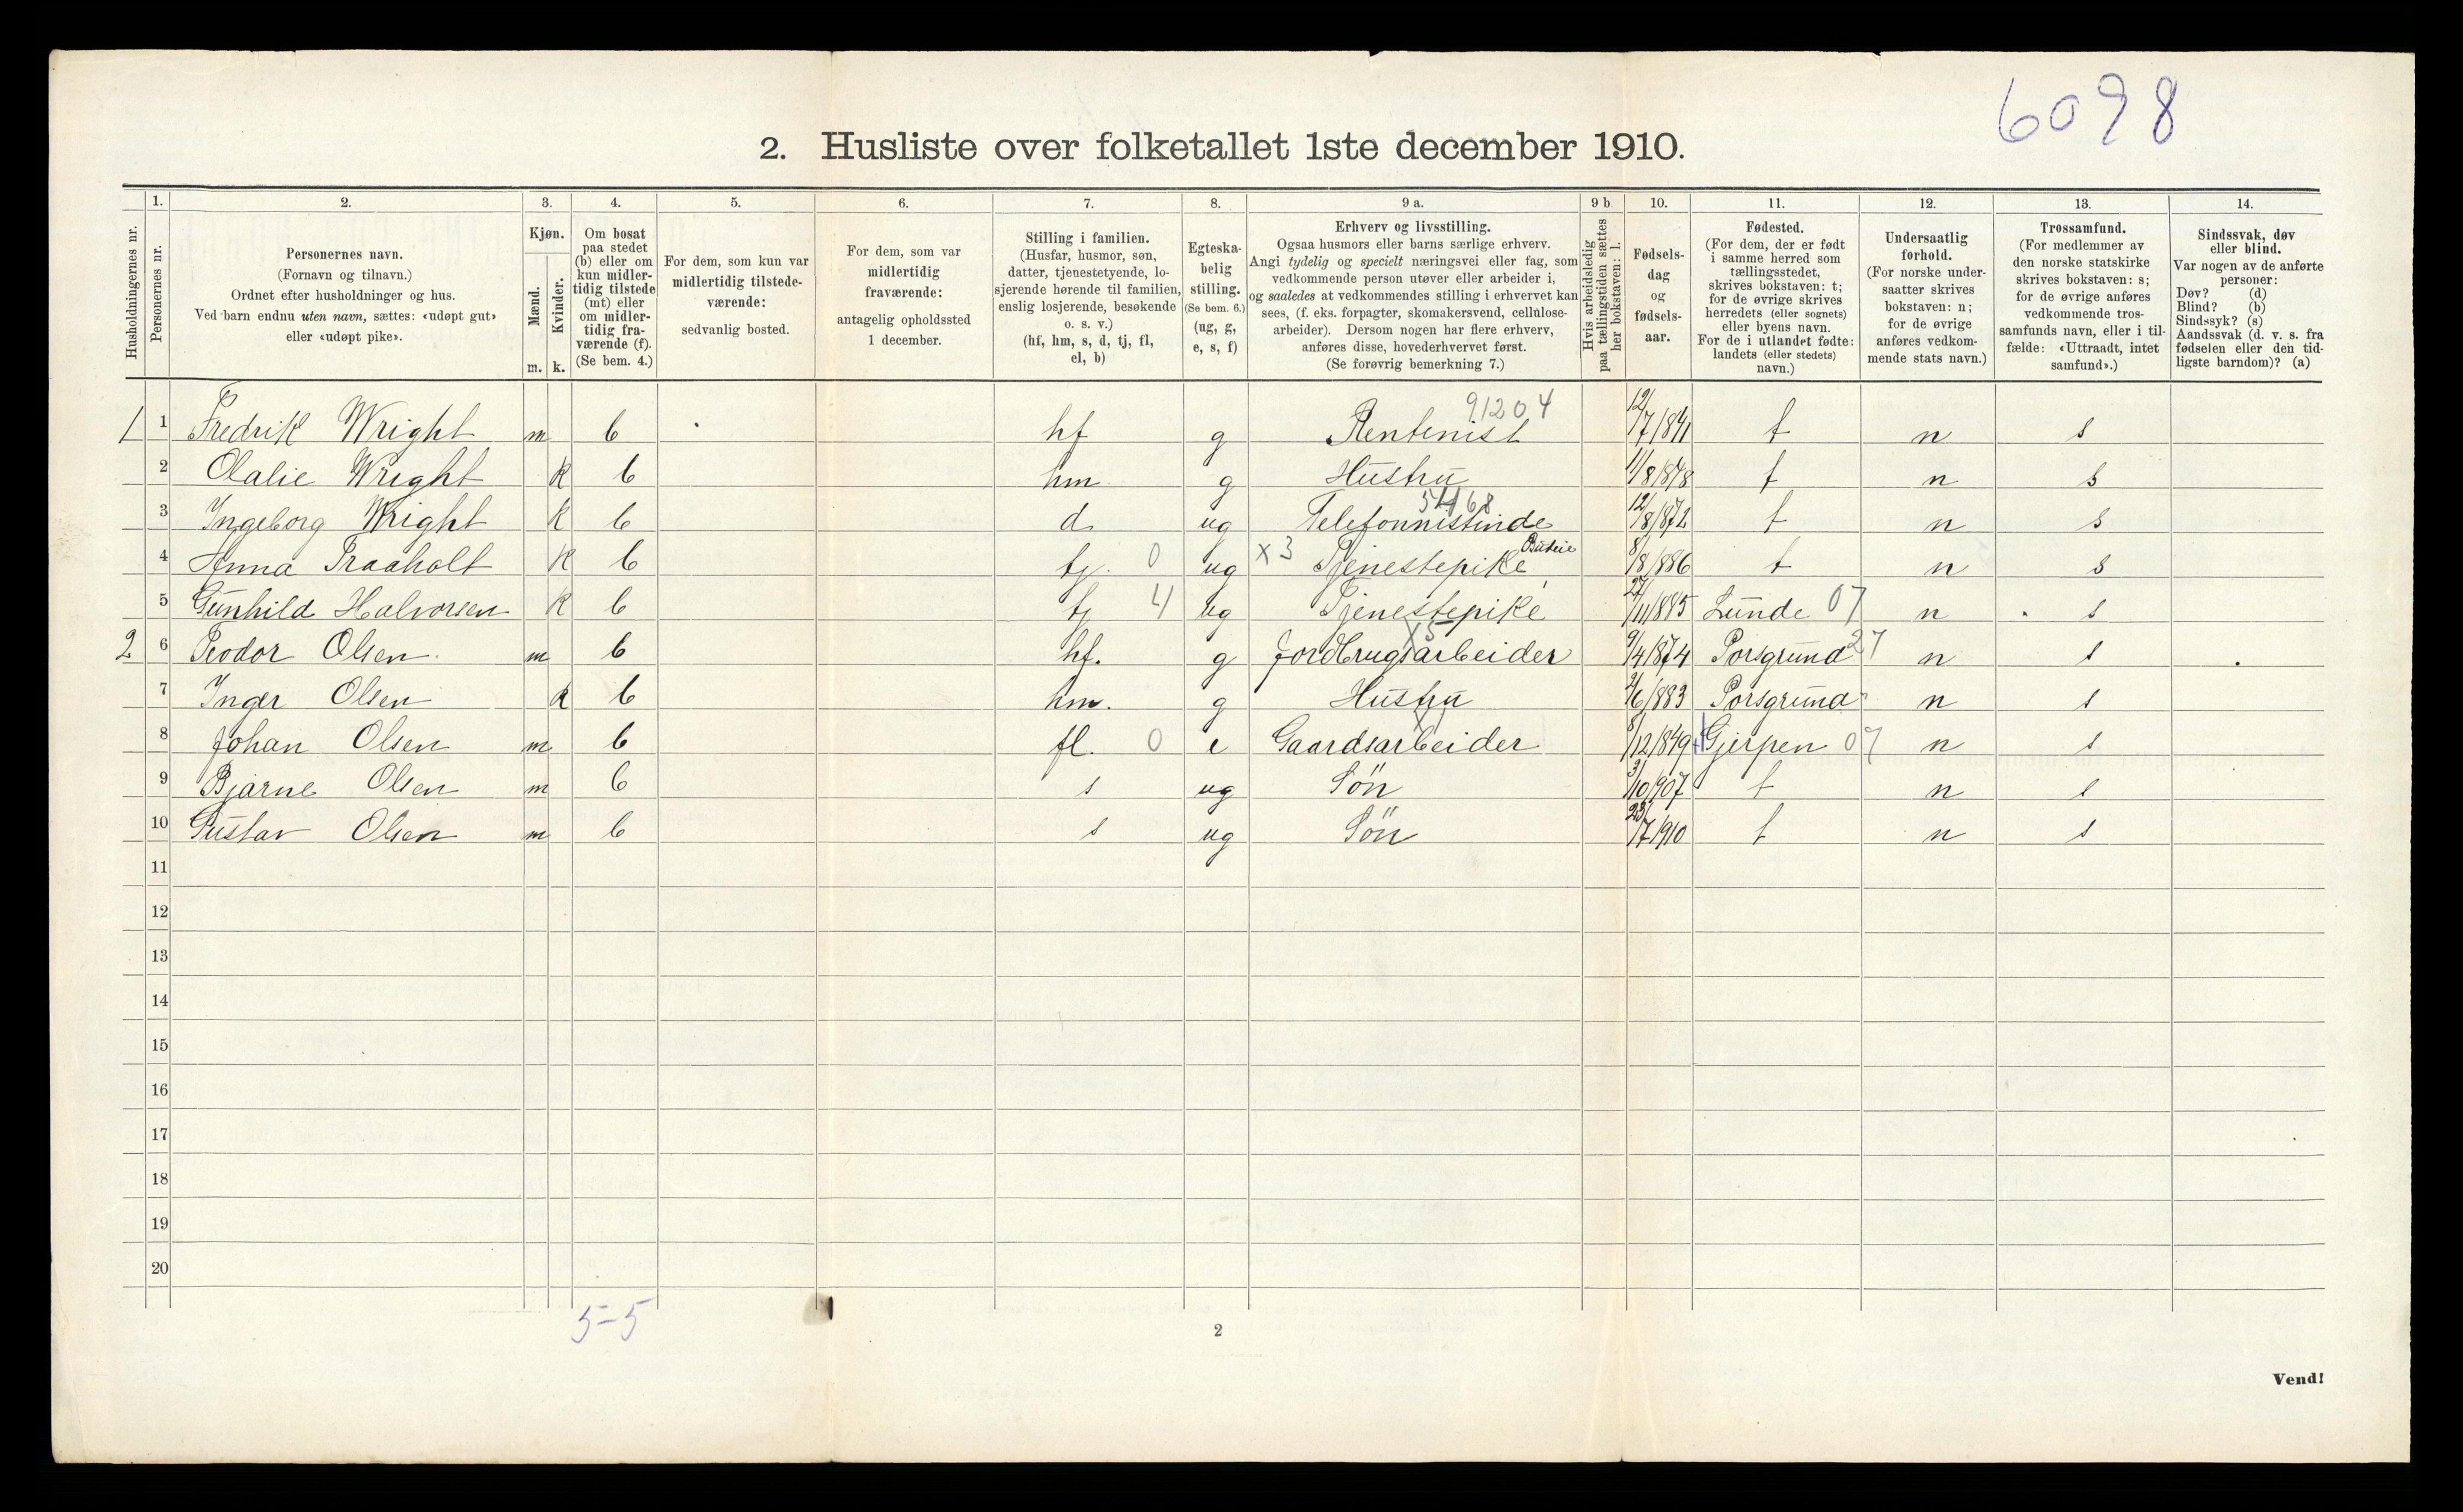 6098
2. Husliste over folketallet 1ste december 1910.
Husholdningernes nr.
1.
Personernes nr.
2.
Personernes navn.
(Fornavn og tilnavn.)
Ordnet efter husholdninger og hus.
Ved barn endnu uten navn, sættes: «udøpt gut»
eller «udøpt pike».
3.
Kjøn.
Mænd.
Kvinder.
m. k.
4.
Om bosat
paa stedet
(b) eller om
kun midler-
tidig tilstede
(mt) eller
om midler-
tidig fra-
værende (f).
(Se bem. 4.)
5.
For dem, som kun var
midlertidig tilstede-
værende:
sedvanlig bosted.
6.
For dem, som var
midlertidig
fraværende:
antagelig opholdssted
1 december.
7.
Stilling i familien.
(Husfar, husmor, søn,
datter, tjenestetyende, lo-
sjerende hørende til familien,
enslig losjerende, besøkende
o. s. v.)
(hf, hm, s, d, tj, fl,
el, b)
8.
Egteska-
belig
stilling.
(Se bem. 6.)
(ug, g,
e, s, f)
9 a.
Erhverv og livsstilling.
Ogsaa husmors eller barns særlige erhverv.
Angi tydelig og specielt næringsvei eller fag, som
vedkommende person utøver eller arbeider i,
og saaledes at vedkommendes stilling i erhvervet kan
sees, (f. eks. forpagter, skomakersvend, cellulose-
arbeider). Dersom nogen har flere erhverv,
anføres disse, hovederhvervet først.
(Se forøvrig bemerkning 7.)
9 b
Hvis arbeidsledig
paa tællingstiden sættes
her bokstaven: l.
10.
Fødsels-
dag
og
fødsels-
aar.
11.
Fødested.
(For dem, der er født
i samme herred som
tællingsstedet,
skrives bokstaven: t;
for de øvrige skrives
herredets (eller sognets)
eller byens navn.
For de i utlandet fødte:
landets (eller stedets)
navn.)
12.
Undersaatlig
forhold.
(For norske under-
saatter skrives
bokstaven: n;
for de øvrige
anføres vedkom-
mende stats navn.)
13.
Trossamfund.
(For medlemmer av
den norske statskirke
skrives bokstaven: s;
for de øvrige anføres
vedkommende tros-
samfunds navn, eller i til-
fælde: «Uttraadt, intet
samfund».)
14.
Sindssvak, døv
eller blind.
Var nogen av de anførte
personer:
Døv? (d)
Blind? (b)
Sindssyk? (s)
Aandssvak (d. v. s. fra
fødselen eller den tid-
ligste barndom)? (a)
91204
1 1 Fredrik Wright m b hf g Rentenist 12/7/1841 t n s
2 Olalie Wright k b hm g Hustru 11/8/1848 t n s
54168
3 Ingeborg Wright k b d ug Telefonnistinde 12/8/872 t n s
4 Anna Traaholt k b tj. 0 ug x3 Tjenestepike Budeie 8/8/886 t n s
5 Gunhild Halvorsen k b tj 4 ug Tjenestepike 27/11/1895 Lunde 07 n s
x5
2 6 Teodor Olsen m b hf. g Jordbrugsarbeider 9/4/874 Porsgrund 27 n s
7 Inger Olsen k b hm. g Hustru /6/883 Porsgrund n s
8 Johan Olsen m b fl. 0 e Gaardsarbeider 8/12/849 Gjerpen 07 n s
9 Bjarne Olsen m b s ug Søn 3/10/907 t n s
10 Gustav Olsen m b s ug Søn 23/7/910 t n s
11
12
13
14
15
16
17
18
19
20
5-5
2
Vend!